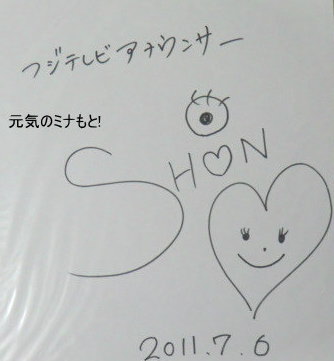 フジテレビアナウンサー
元気のミナもと!
SHO N
2011.7.6